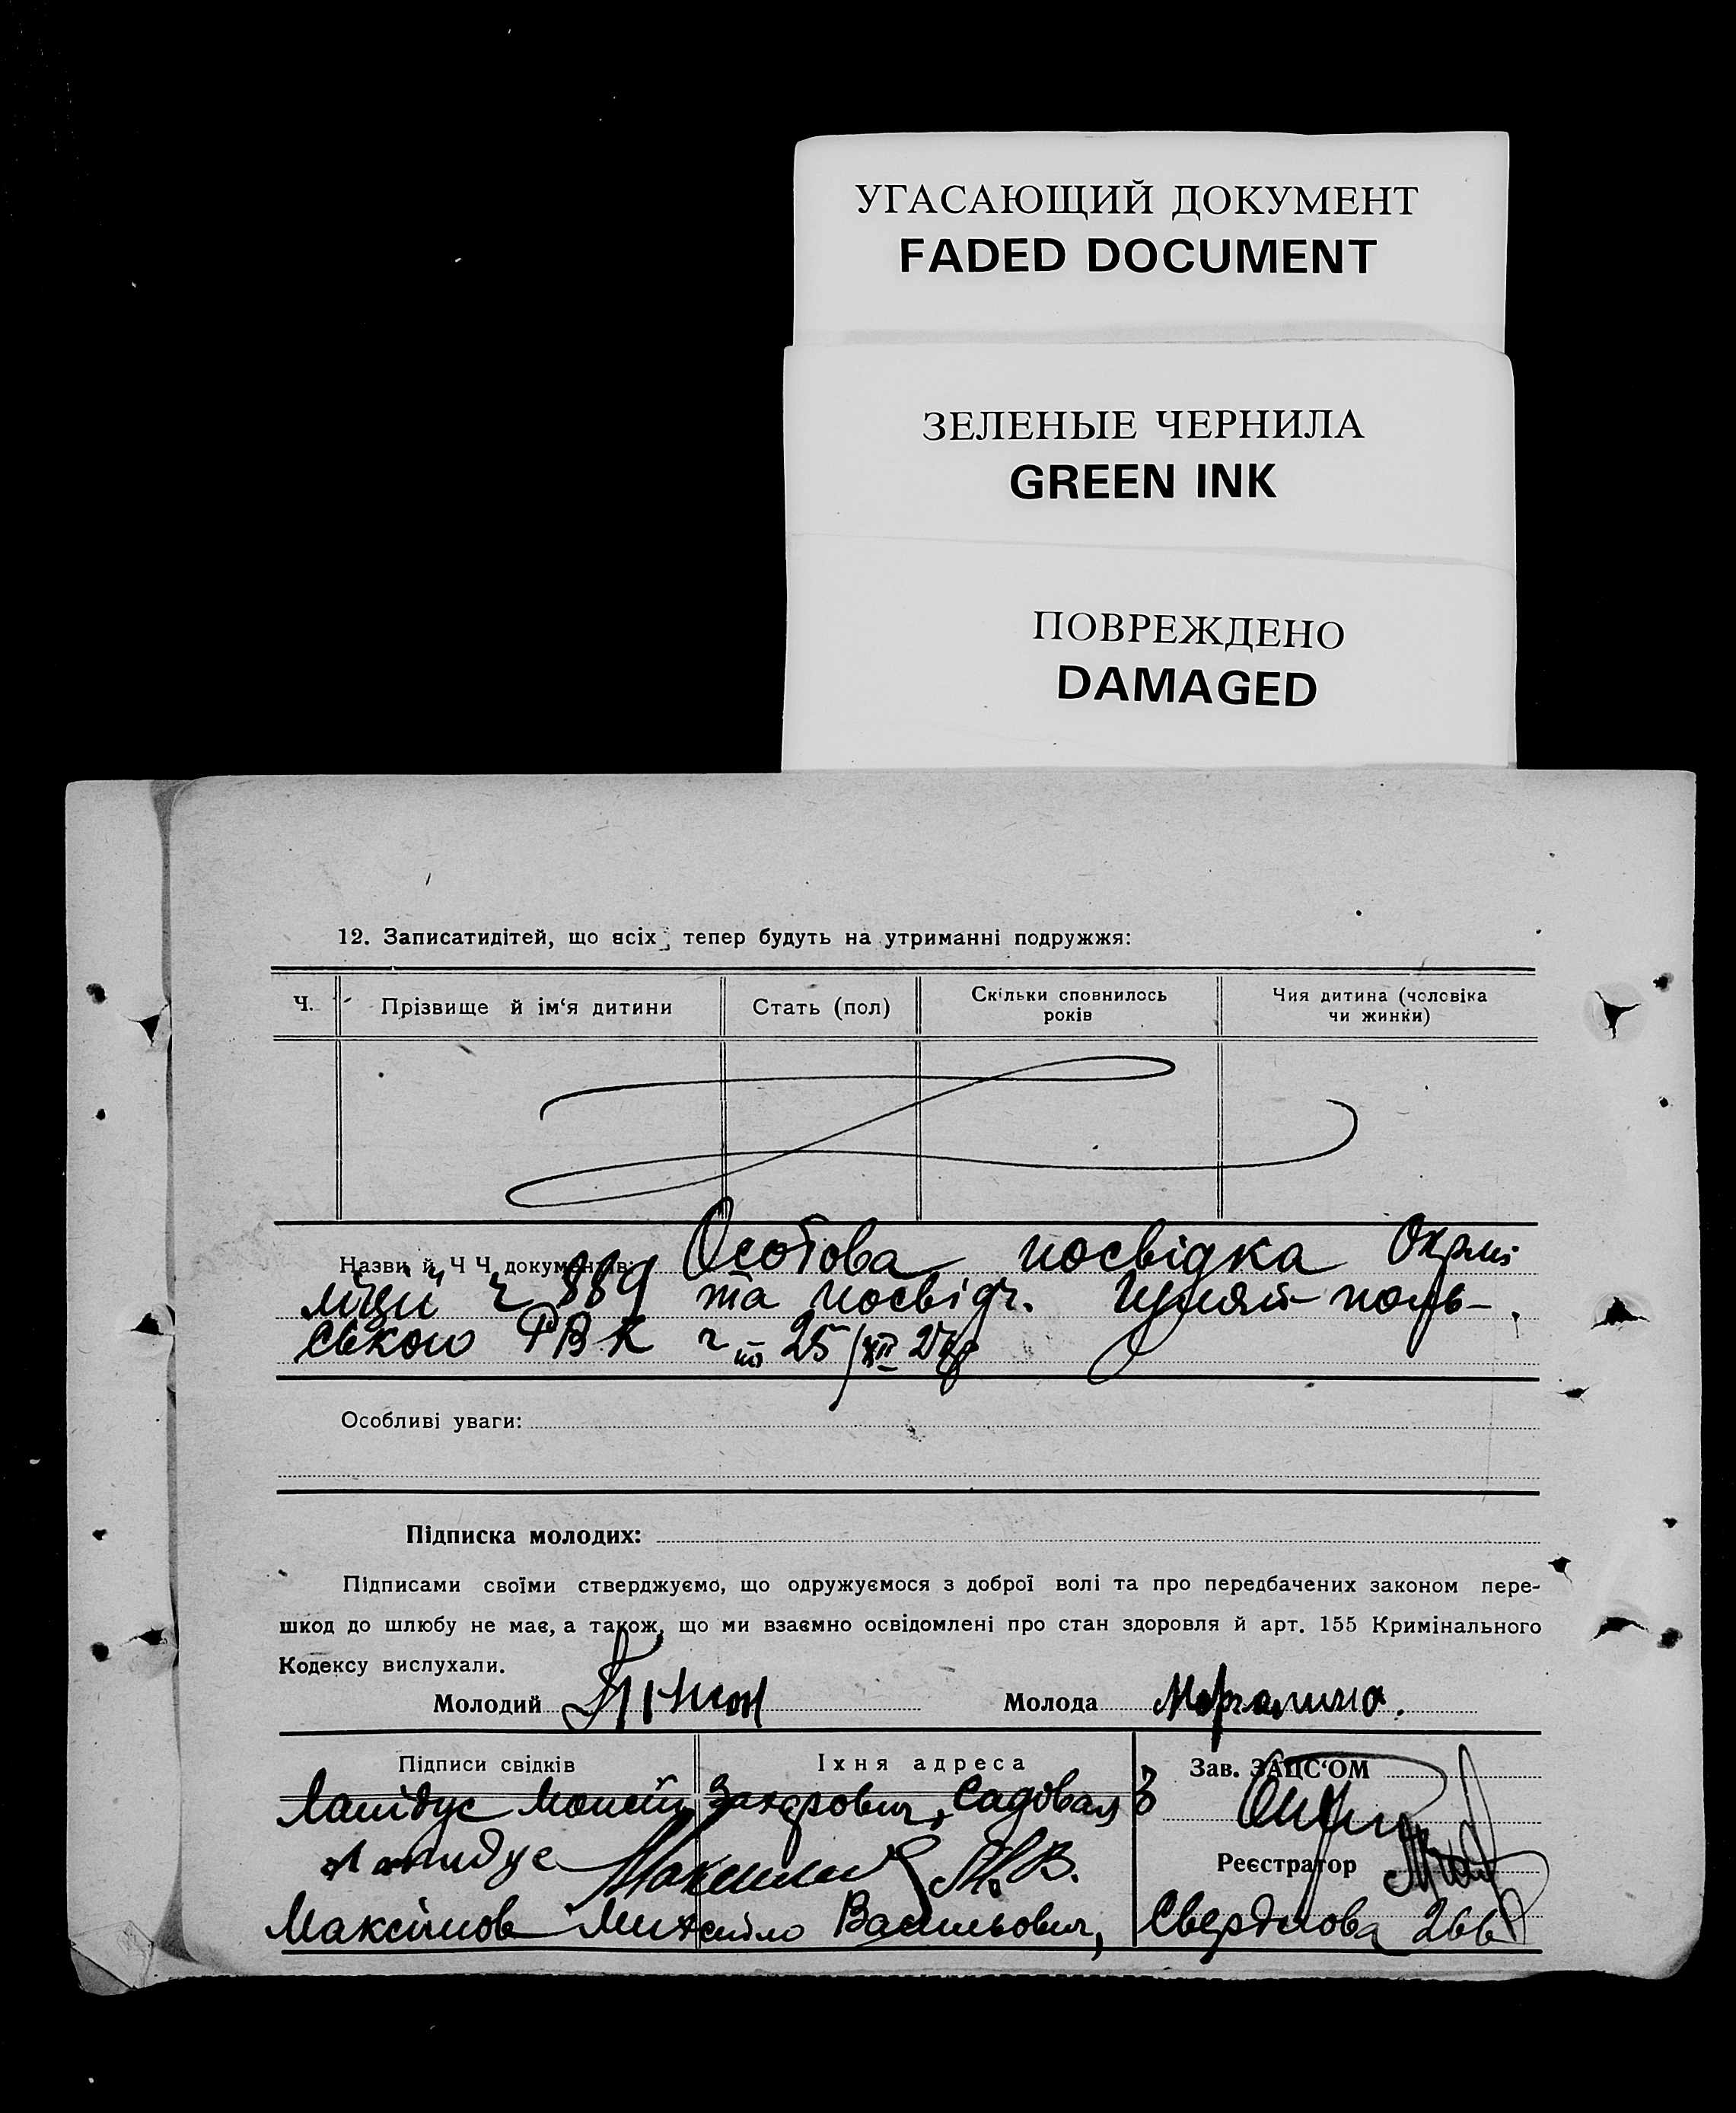 УГАСАЮЩИЙ ДОКУМЕНТ
FADED DOCUMENT
ЗЕЛЕНЫЕ ЧЕРНИЛА
GREEN INK
ПОВРЕЖДЕНО
DAMAGED
12. Записатидітей, що всіх тепер будуть на утриманні подружжя:
Ч. Прізвище й ім'я дитини Стать (пол) Скільки сповнилось років Чия дитина (чоловіка чи жинки)
Назви й Ч Ч документів: Особова посвідка Окрмі
ліції ч 889 та посвідч. Гуляй-поль-
ського РВК ч 25/XII
Особливі уваги:
Підписка молодих:
Підписами своїми стверджуємо, що одружуємося з доброї волі та про передбачених законом пере-
шкод до шлюбу не має, а також, що ми взаємно освідомлені про стан здоровля й арт. 155 Кримінального
Кодексу вислухали.
Молодий Молода Маргалина.
Підписи свідків Їхня адреса Зав. ЗАЦС'ОМ
Лапідус Мойсей Захарович, Садовая 3
Лапидус М.В. Реєстратор
Максімов Михайло Васильович, Свердлова 266